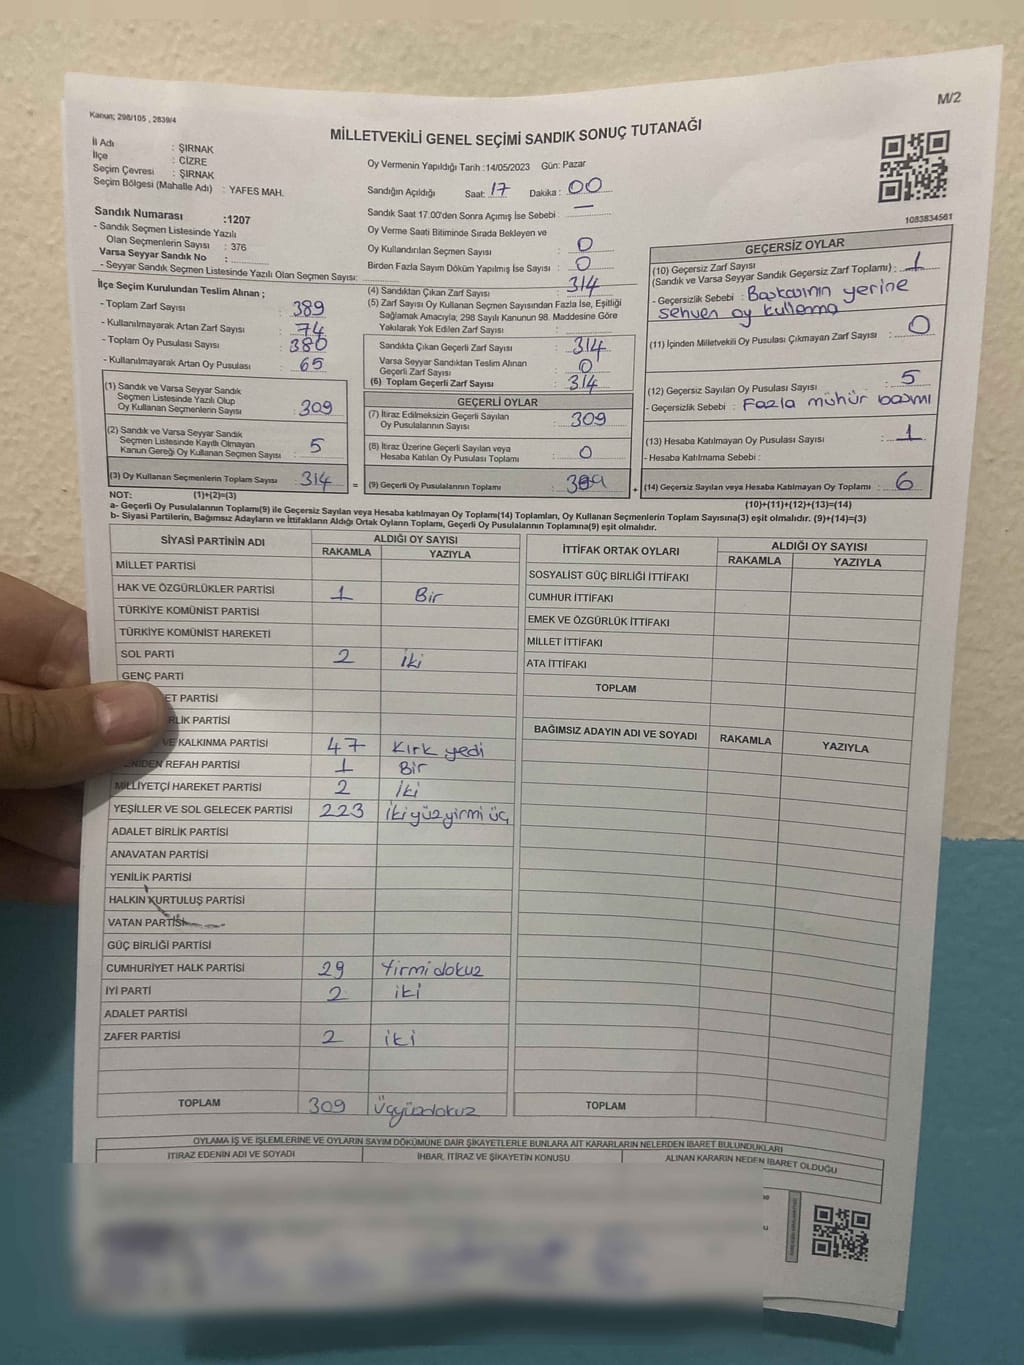 M/2
Kanun; 298/105 , 2839/4
MİLLETVEKİLİ GENEL SEÇİMİ SANDIK SONUÇ TUTANAĞI
İl Adı : ŞIRNAK
İlçe : CİZRE
Seçim Çevresi : ŞIRNAK
Seçim Bölgesi (Mahalle Adı) : YAFES MAH.
Sandık Numarası :1207
- Sandık Seçmen Listesinde Yazılı
Olan Seçmenlerin Sayısı : 376
Varsa Seyyar Sandık No :
- Seyyar Sandık Seçmen Listesinde Yazılı Olan Seçmen Sayısı:
İlçe Seçim Kurulundan Teslim Alınan ;
- Toplam Zarf Sayısı : 389
- Kullanılmayarak Artan Zarf Sayısı : 74
- Toplam Oy Pusulası Sayısı : 380
- Kullanılmayarak Artan Oy Pusulası : 65
(1) Sandık ve Varsa Seyyar Sandık
Seçmen Listesinde Yazılı Olup
Oy Kullanan Seçmenlerin Sayısı : 309
(2) Sandık ve Varsa Seyyar Sandık
Seçmen Listesinde Kayıtlı Olmayan
Kanun Gereği Oy Kullanan Seçmen Sayısı : 5
(3) Oy Kullanan Seçmenlerin Toplam Sayısı : 314
Oy Vermenin Yapıldığı Tarih :14/05/2023 Gün: Pazar
Sandığın Açıldığı Saat: 17 Dakika : 00
Sandık Saat 17.00'den Sonra Açımış İse Sebebi : —
Oy Verme Saati Bitiminde Sırada Bekleyen ve
Oy Kullandırılan Seçmen Sayısı : 0
Birden Fazla Sayım Döküm Yapılmış İse Sayısı : 0
(4) Sandıktan Çıkan Zarf Sayısı : 314
(5) Zarf Sayısı Oy Kullanan Seçmen Sayısından Fazla İse, Eşitliği
Sağlamak Amacıyla, 298 Sayılı Kanunun 98. Maddesine Göre
Yakılarak Yok Edilen Zarf Sayısı :
Sandıkta Çıkan Geçerli Zarf Sayısı : 314
Varsa Seyyar Sandıktan Teslim Alınan
Geçerli Zarf Sayısı : 0
(6) Toplam Geçerli Zarf Sayısı : 314
GEÇERLİ OYLAR
(7) İtiraz Edilmeksizin Geçerli Sayılan
Oy Pusulalarının Sayısı : 309
(8) İtiraz Üzerine Geçerli Sayılan veya
Hesaba Katılan Oy Pusulası Toplamı : 0
= (9) Geçerli Oy Pusulalarının Toplamı : 309
1083834561
GEÇERSİZ OYLAR
(10) Geçersiz Zarf Sayısı
(Sandık ve Varsa Seyyar Sandık Geçersiz Zarf Toplamı) : 1
- Geçersizlik Sebebi : Başkasının yerine
sehven oy kullanma
(11) İçinden Milletvekili Oy Pusulası Çıkmayan Zarf Sayısı : 0
(12) Geçersiz Sayılan Oy Pusulası Sayısı : 5
- Geçersizlik Sebebi : Fazla mühür basımı
(13) Hesaba Katılmayan Oy Pusulası Sayısı : 1
- Hesaba Katılmama Sebebi :
+ (14) Geçersiz Sayılan veya Hesaba Katılmayan Oy Toplamı : 6
NOT: (1)+(2)=(3)
(10)+(11)+(12)+(13)=(14)
a- Geçerli Oy Pusulasının Toplamı(9) ile Geçersiz Sayılan veya Hesaba katılmayan Oy Toplamı(14) Toplamları, Oy Kullanan Seçmenlerin Toplam Sayısına(3) eşit olmalıdır. (9)+(14)=(3)
b- Siyasi Partilerin, Bağımsız Adayların ve İttifakların Aldığı Ortak Oyların Toplamı, Geçerli Oy Pusulalarının Toplamına(9) eşit olmalıdır.
SİYASİ PARTİNİN ADI ALDIĞI OY SAYISI
RAKAMLA YAZIYLA
MİLLET PARTİSİ
HAK VE ÖZGÜRLÜKLER PARTİSİ 1 Bir
TÜRKİYE KOMÜNİST PARTİSİ
TÜRKİYE KOMÜNİST HAREKETİ
SOL PARTİ 2 iki
GENÇ PARTİ
ET PARTİSİ
RLİK PARTİSİ
VE KALKINMA PARTİSİ 47 Kırk yedi
ENİDEN REFAH PARTİSİ 1 Bir
MİLLİYETÇİ HAREKET PARTİSİ 2 İki
YEŞİLLER VE SOL GELECEK PARTİSİ 223 İkiyüzyirmi üç
ADALET BİRLİK PARTİSİ
ANAVATAN PARTİSİ
YENİLİK PARTİSİ
HALKIN KURTULUŞ PARTİSİ
VATAN PARTİSİ
GÜÇ BİRLİĞİ PARTİSİ
CUMHURİYET HALK PARTİSİ 29 Yirmidokuz
İYİ PARTİ 2 iki
ADALET PARTİSİ
ZAFER PARTİSİ 2 iki
TOPLAM 309 Üçyüzdokuz
İTTİFAK ORTAK OYLARI ALDIĞI OY SAYISI
RAKAMLA YAZIYLA
SOSYALİST GÜÇ BİRLİĞİ İTTİFAKI
CUMHUR İTTİFAKI
EMEK VE ÖZGÜRLÜK İTTİFAKI
MİLLET İTTİFAKI
ATA İTTİFAKI
TOPLAM
BAĞIMSIZ ADAYIN ADI VE SOYADI RAKAMLA YAZIYLA
TOPLAM
OYLAMA İŞ VE İŞLEMLERİNE VE OYLARIN SAYIM DÖKÜMÜNE DAİR ŞİKAYETLERLE BUNLARA AİT KARARLARIN NELERDEN İBARET BULUNDUKLARI
İTİRAZ EDENİN ADI VE SOYADI İHBAR, İTİRAZ VE ŞİKAYETİN KONUSU ALINAN KARARIN NEDEN İBARET OLDUĞU